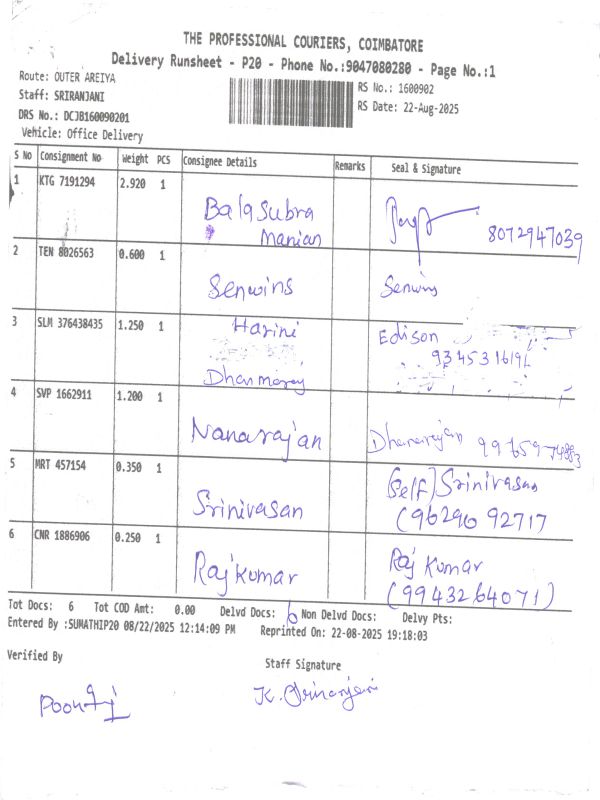 THE PROFESSIONAL COURIERS, COIMBATORE
Delivery Runsheet - P20 - Phone No.:9047080280 - Page No.:1
Route: OUTER AREIYA
RS No.: 1600902
Staff: SRIRANJANI
RS Date: 22-Aug-2025
DRS No.: DCJB160090201
Vehicle: Office Delivery
S No Consignment No Weight PCS Consignee Details Remarks Seal & Signature
1 KTG 7191294 2.920 1 Bala Subra
manian 8072947039
2 TEN 8026563 0.600 1 Senwins Senwins
3 SLM 376438435 1.250 1 Harini Edison
Dhanmaraj
4 SVP 1662911 1.200 1 Nanarajan Dhanarajan
5 MRT 457154 0.350 1 Srinivasan (Self) Srinivasan
(96290 92717
6 CNR 1886906 0.250 1 Rajkumar Raj Kumar
(9943264071)
Tot Docs: 6 Tot COD Amt: 0.00 Delvd Docs: 6 Non Delvd Docs: Delvy Pts:
Entered By :SUMATHIP20 08/22/2025 12:14:09 PM Reprinted On: 22-08-2025 19:18:03
Verified By Staff Signature
K. Sriranjani